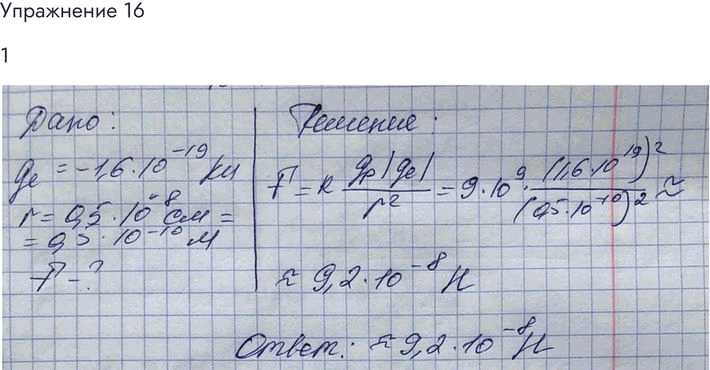 Упражнение 16
1
Дано:
qe = -1,6·10^-19 Кл
r = 0,5·10^-8 см =
= 0,5·10^-10 м
F - ?
Решение:
F = k qp|qe| / r^2 = 9·10^9 · (1,6·10^19)^2 / (0,5·10^-10)^2 ≈
≈ 9,2·10^-8 Н
Ответ: ≈ 9,2·10^-8 Н